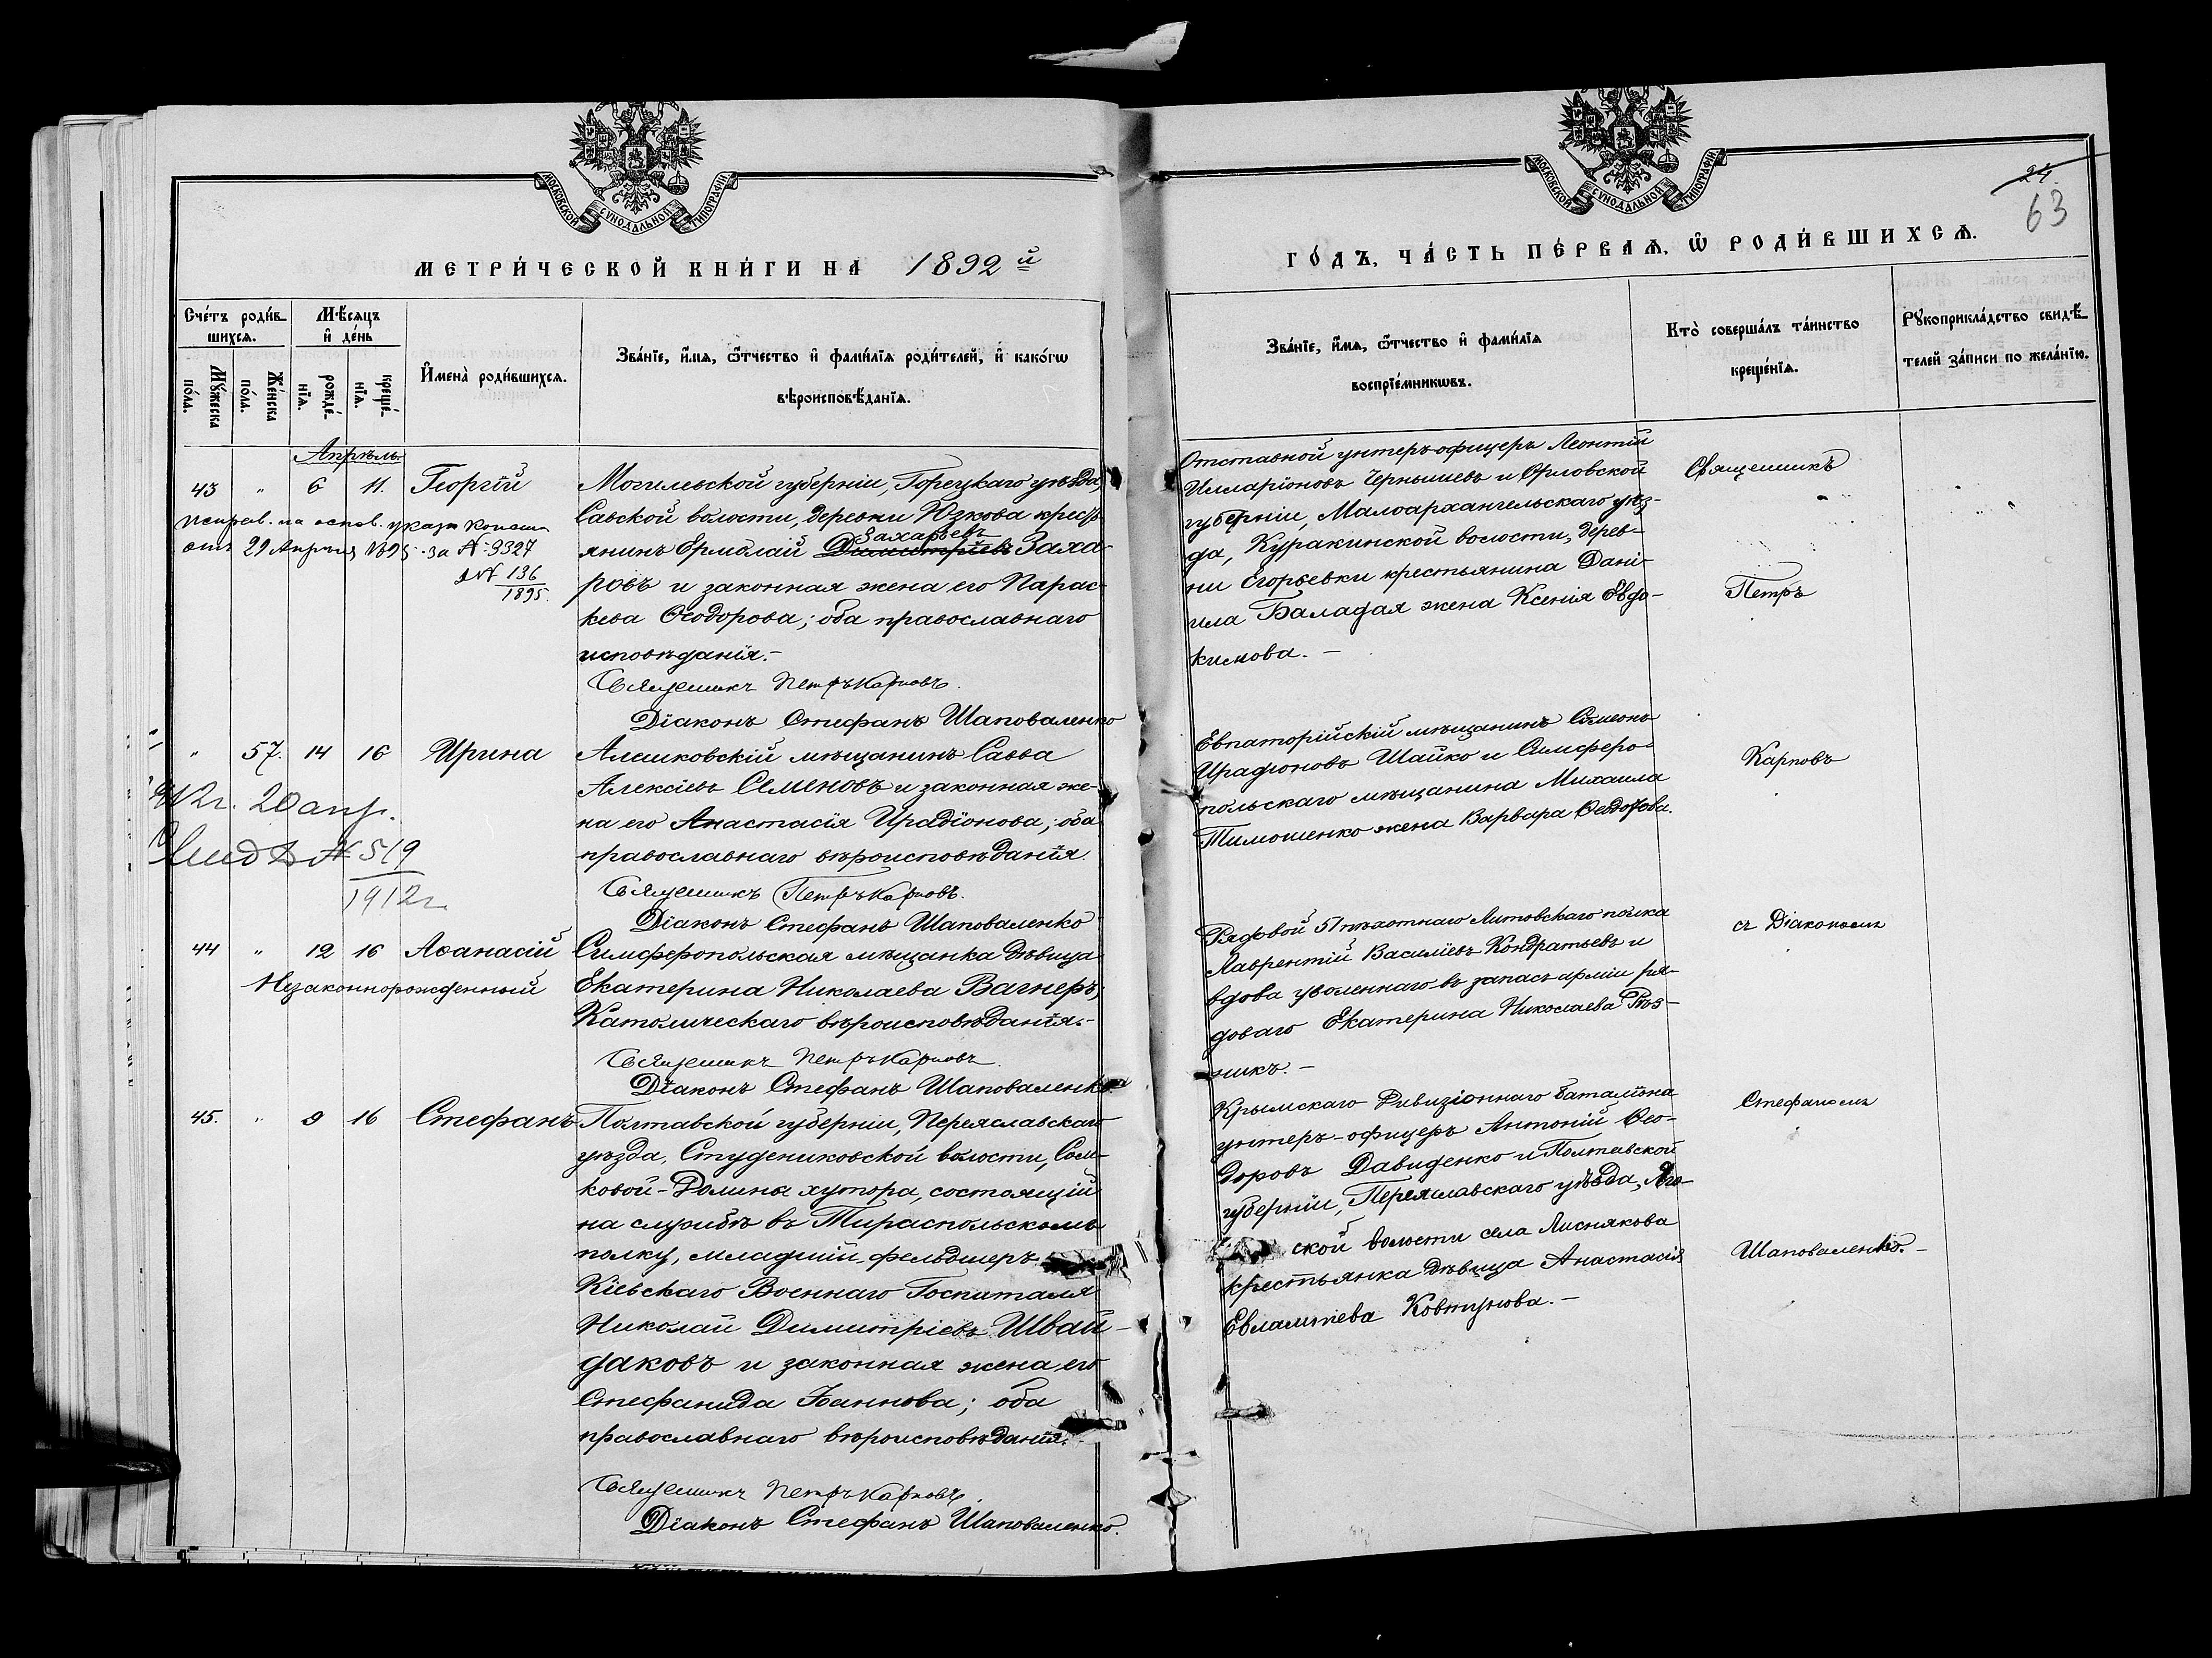 МОСКОВСКОЙ СѴНОДАЛЬНОЙ ТИПОГРАФІИ
МЕТРИ́ЧЕСКОЙ КНИ́ГИ НА 1892й
Сче́тъ роди́в-
шихсѧ.
Мѣ́сяцъ
и҆ де́нь
Мꙋ́жеска
по́ла.
Же́нска
по́ла.
рожде́-
нїѧ.
креще́-
нїѧ.
И҆мена̀ роди́вшихсѧ.
Зва́нїе, и҆́мѧ, ѻ҆́тчество и҆ фами́лїѧ роди́телей, и҆ како́гѡ
вѣроисповѣ́данїѧ.
Апрѣль.
43 " 6 11. Георгій
Исправ. на основ. указа Консист.
отъ 29 Апрѣля 1895 за № 9327
№ 136
1895.
Могилевской губерніи, Горецкаго уѣзда,
Савской волости, деревни Юзкова кресть-
Захарьевъ
янинъ Ермолай Димитріевъ Заха-
ровъ и законная жена его Парас-
кева Ѳеодорова; оба православнаго
исповѣданія.-
Священникъ Петръ Карповъ.
Діаконъ Стефанъ Шаповаленко
" 57. 14 16 Ирина
20 апр.
№ 519
1912 г.
Алешковскій мѣщанинъ Савва
Алексіевъ Семеновъ и законная же-
на его Анастасія Иродіонова; оба
православнаго вѣроисповѣданія.
Священникъ Петръ Карповъ.
Діаконъ Стефанъ Шаповаленко
44 " 12 16 Аѳанасій
Незаконнорожденный
Симферопольская мѣщанка дѣвица
Екатерина Николаева Вагнеръ;
Католическаго вѣроисповѣданія.-
Священникъ Петръ Карповъ.
Діаконъ Стефанъ Шаповаленко.
45. " 9 16 Стефанъ
Полтавской губерніи, Переяславскаго
уѣзда, Студениковской волости, Сом-
ковой-Долины хутора, состоящій
на службѣ въ Тираспольскомъ
полку, младшій фельдшеръ
Кіевскаго Военнаго Госпиталя
Николай Димитріевъ Швай-
даковъ и законная жена его
Стефанида Іоаннова; оба
православнаго вѣроисповѣданія.
Священникъ Петръ Карповъ.
Діаконъ Стефанъ Шаповаленко.
МОСКОВСКОЙ СѴНОДАЛЬНОЙ ТИПОГРАФІИ
24.
63
ГО́ДЪ, ЧА́СТЬ ПЕ́РВАѦ, Ѡ҆ РОДИ́ВШИХСѦ.
Зва́нїе, и҆́мѧ, ѻ҆́тчество и҆ фами́лїѧ
воспрїе́мникѡвъ.
Кто̀ соверша́лъ та́инство
креще́нїѧ.
Рꙋкоприкла́дство свидѣ́-
телей за́писи по жела́нїю.
Отставной унтеръ-офицеръ Леонтій
Илларіоновъ Чернышевъ и Орловской
губерніи, Малоархангельскаго уѣз-
да, Куракинской волости, дерев-
ни Егорьевки крестьянина Дані-
ила Баладая жена Ксенія Евдо-
кимова. -
Священникъ
Петръ
Евпаторійскій мѣщанинъ Симеонъ
Ирадіоновъ Шайко и Симферо-
польскаго мѣщанина Михаила
Тимошенко жена Варвара Ѳеодорова.
Карповъ
Рядовой 51 пѣхотнаго Литовскаго полка
Лаврентій Васильевъ Кондратьевъ и
вдова уволеннаго въ запасъ арміи ря-
доваго Екатерина Николаева Рѣз-
никъ. -
съ Діакономъ
Крымскаго Дивизіоннаго баталіона
унтеръ-офицеръ Антоній Ѳео-
доровъ Давиденко и Полтавской
губерніи, Переяславскаго уѣзда,
ской волости села Лиснякова
крестьянка дѣвица Анастасія
Евлампіева Ковтунова. -
Стефаномъ
Шаповаленко. -